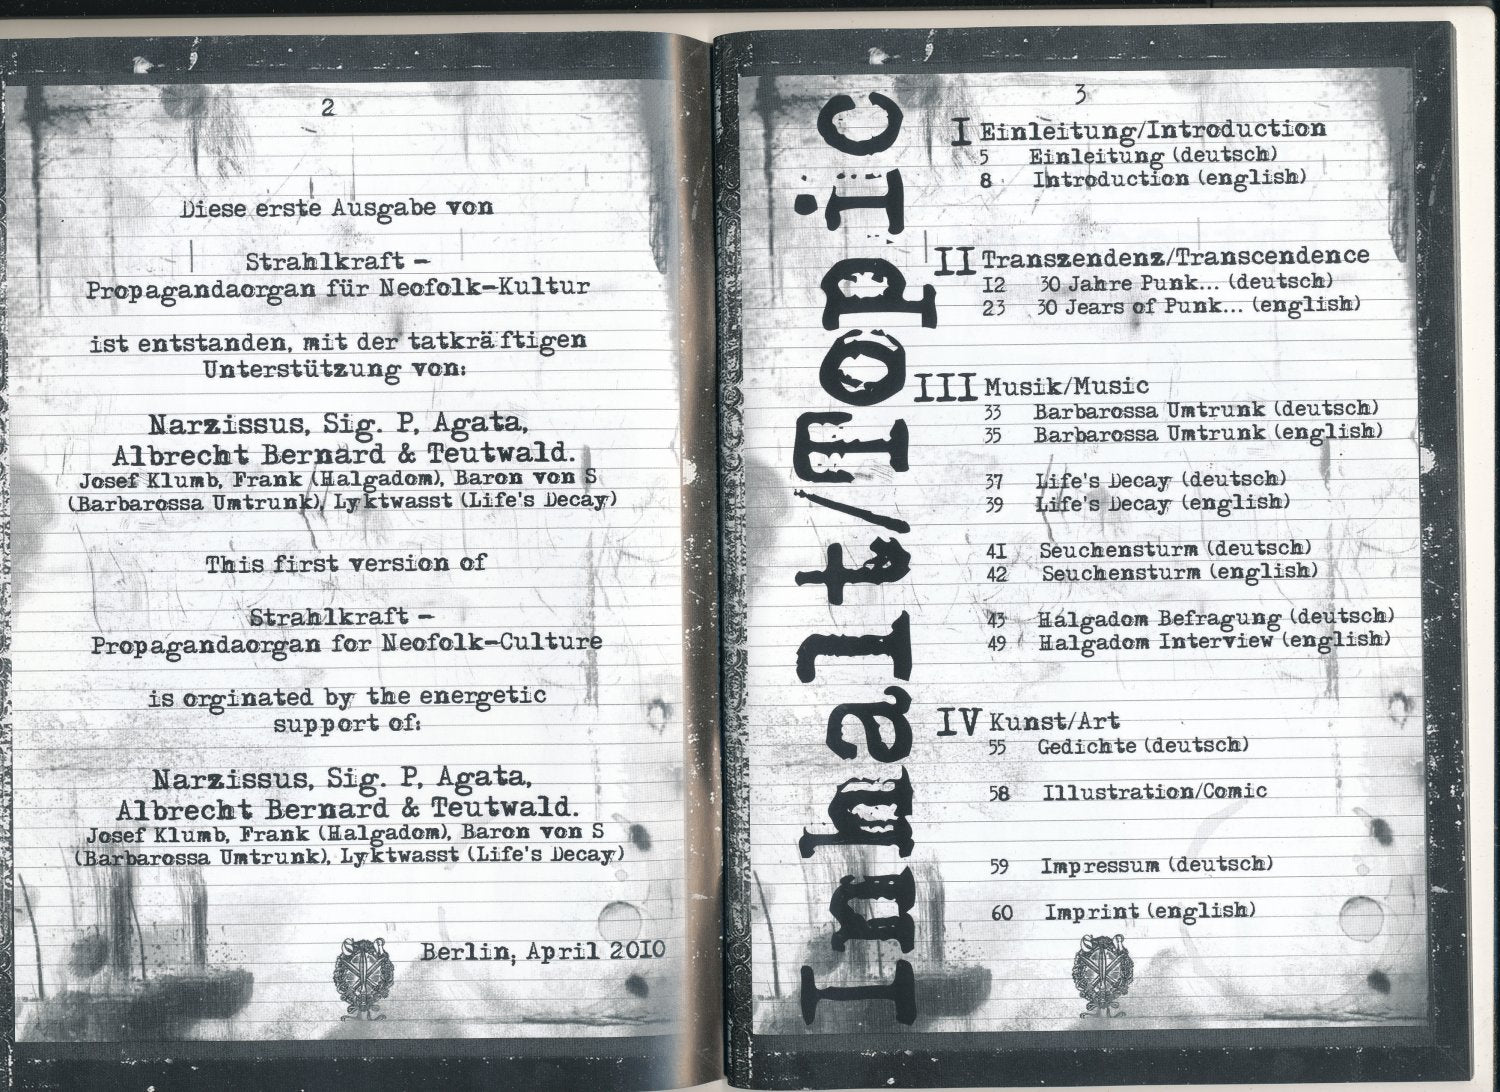 2
Diese erste Ausgabe von
Strahlkraft –
Propagandaorgan für Neofolk-Kultur
ist entstanden, mit der tatkräftigen
Unterstützung von:
Narzissus, Sig. P, Agata,
Albrecht Bernard & Teutwald.
Josef Klumb, Frank (Halgadom), Baron von S
(Barbarossa Umtrunk), Lyktwasst (Life's Decay)
This first version of
Strahlkraft –
Propagandaorgan for Neofolk-Culture
is orginated by the energetic
support of:
Narzissus, Sig. P, Agata,
Albrecht Bernard & Teutwald.
Josef Klumb, Frank (Halgadom), Baron von S
(Barbarossa Umtrunk), Lyktwasst (Life's Decay)
Berlin, April 2010
3
Inhalt/Topic
I Einleitung/Introduction
5 Einleitung (deutsch)
8 Introduction (english)
II Transzendenz/Transcendence
12 30 Jahre Punk... (deutsch)
23 30 Jears of Punk... (english)
III Musik/Music
33 Barbarossa Umtrunk (deutsch)
35 Barbarossa Umtrunk (english)
37 Life's Decay (deutsch)
39 Life's Decay (english)
41 Seuchensturm (deutsch)
42 Seuchensturm (english)
43 Halgadom Befragung (deutsch)
49 Halgadom Interview (english)
IV Kunst/Art
55 Gedichte (deutsch)
58 Illustration/Comic
59 Impressum (deutsch)
60 Imprint (english)